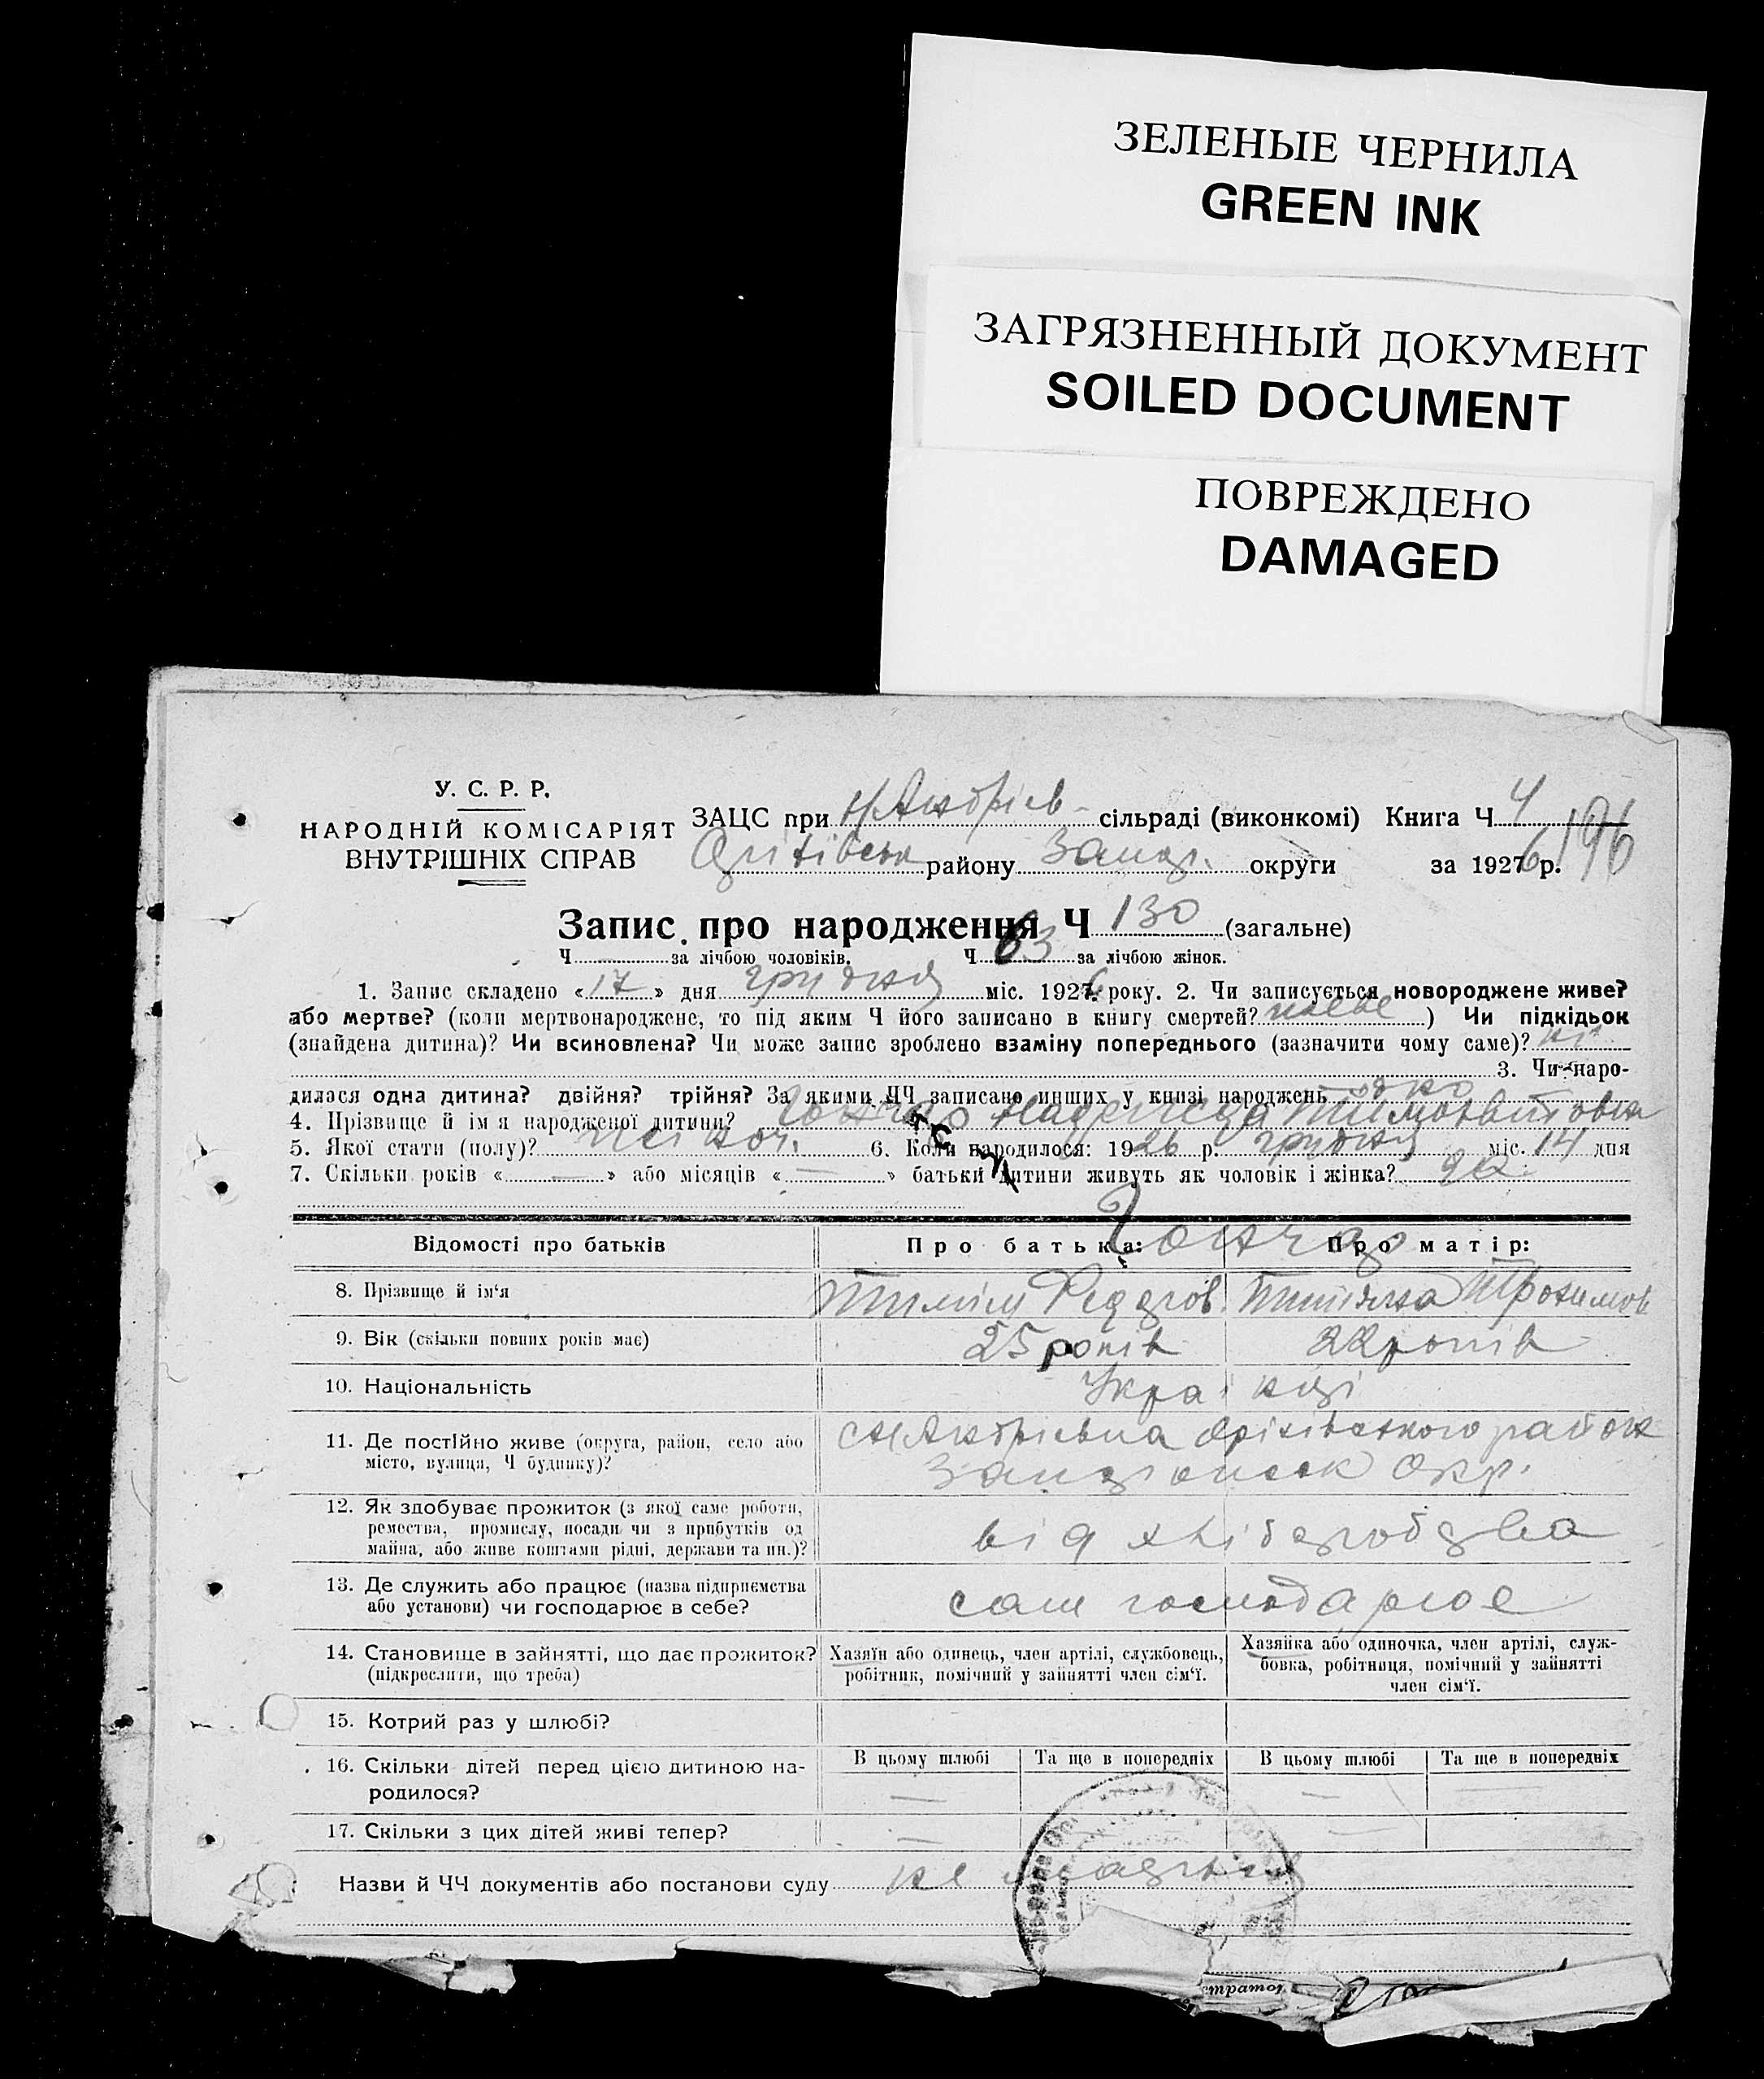 ЗЕЛЕНЫЕ ЧЕРНИЛА
GREEN INK
ЗАГРЯЗНЕННЫЙ ДОКУМЕНТ
SOILED DOCUMENT
ПОВРЕЖДЕНО
DAMAGED
У. С. Р. Р.
НАРОДНІЙ КОМІСАРІЯТ
ВНУТРІШНІХ СПРАВ
ЗАЦС при Н/Андріев- сільраді (виконкомі) Книга Ч 4
району Запор. округи за 1926 р. 196
Запис про народження Ч 130 (загальне)
Ч за лічбою чоловіків. Ч 63 за лічбою жінок.
1. Запис складено «17» дня грудня міс. 1926 року. 2. Чи записується новороджене живе?
або мертве? (коли мертвонароджене, то під яким Ч його записано в книгу смертей? живе ) Чи підкідьок
(знайдена дитина)? Чи всиновлена? Чи може запис зроблено взаміну попереднього (зазначити чому саме)? ні
3. Чи наро-
дилася одна дитина? двійня? трійня? За якими ЧЧ записано инших у книзі народжень одно
4. Прізвище й ім'я народженої дитини? Гончар Надежда Тимофатовна
5. Якої стати (полу)? жіноч. 6. Коли народилося: 1926 р. грудня міс. 14 дня
7. Скільки років « — » або місяців « — » батьки дитини живуть як чоловік і жінка? да.
Відомості про батьків Про батька: Про матір:
Гончар
8. Прізвище й ім'я Федоров. Трохимов
9. Вік (скільки повних років має) 25 років 22 років
10. Національність Українці
11. Де постійно живе (округа, район, село або Оріхівського район
місто, вулиця, Ч будинку)? Запорожск Окр.
12. Як здобуває прожиток (з якої саме роботи,
ремества, промислу, посади чи з прибутків од від хліборобдва
майна, або живе коштами рідні, держави та ин.)?
13. Де служить або працює (назва підприємства сам господарює
або установи) чи господарює в себе?
14. Становище в зайнятті, що дає прожиток? Хазяїн або одинець, член артілі, службовець, Хазяйка або одиночка, член артілі, служ-
(підкреслити, що треба) робітник, помічний у зайнятті член сім'ї. бовка, робітниця, помічний у зайнятті
член сім'ї.
15. Котрий раз у шлюбі?
16. Скільки дітей перед цією дитиною на- В цьому шлюбі Та ще в попередніх В цьому шлюбі Та ще в попередніх
родилося? — —
17. Скільки з цих дітей живі тепер? — —
Назви й ЧЧ документів або постанови суду не